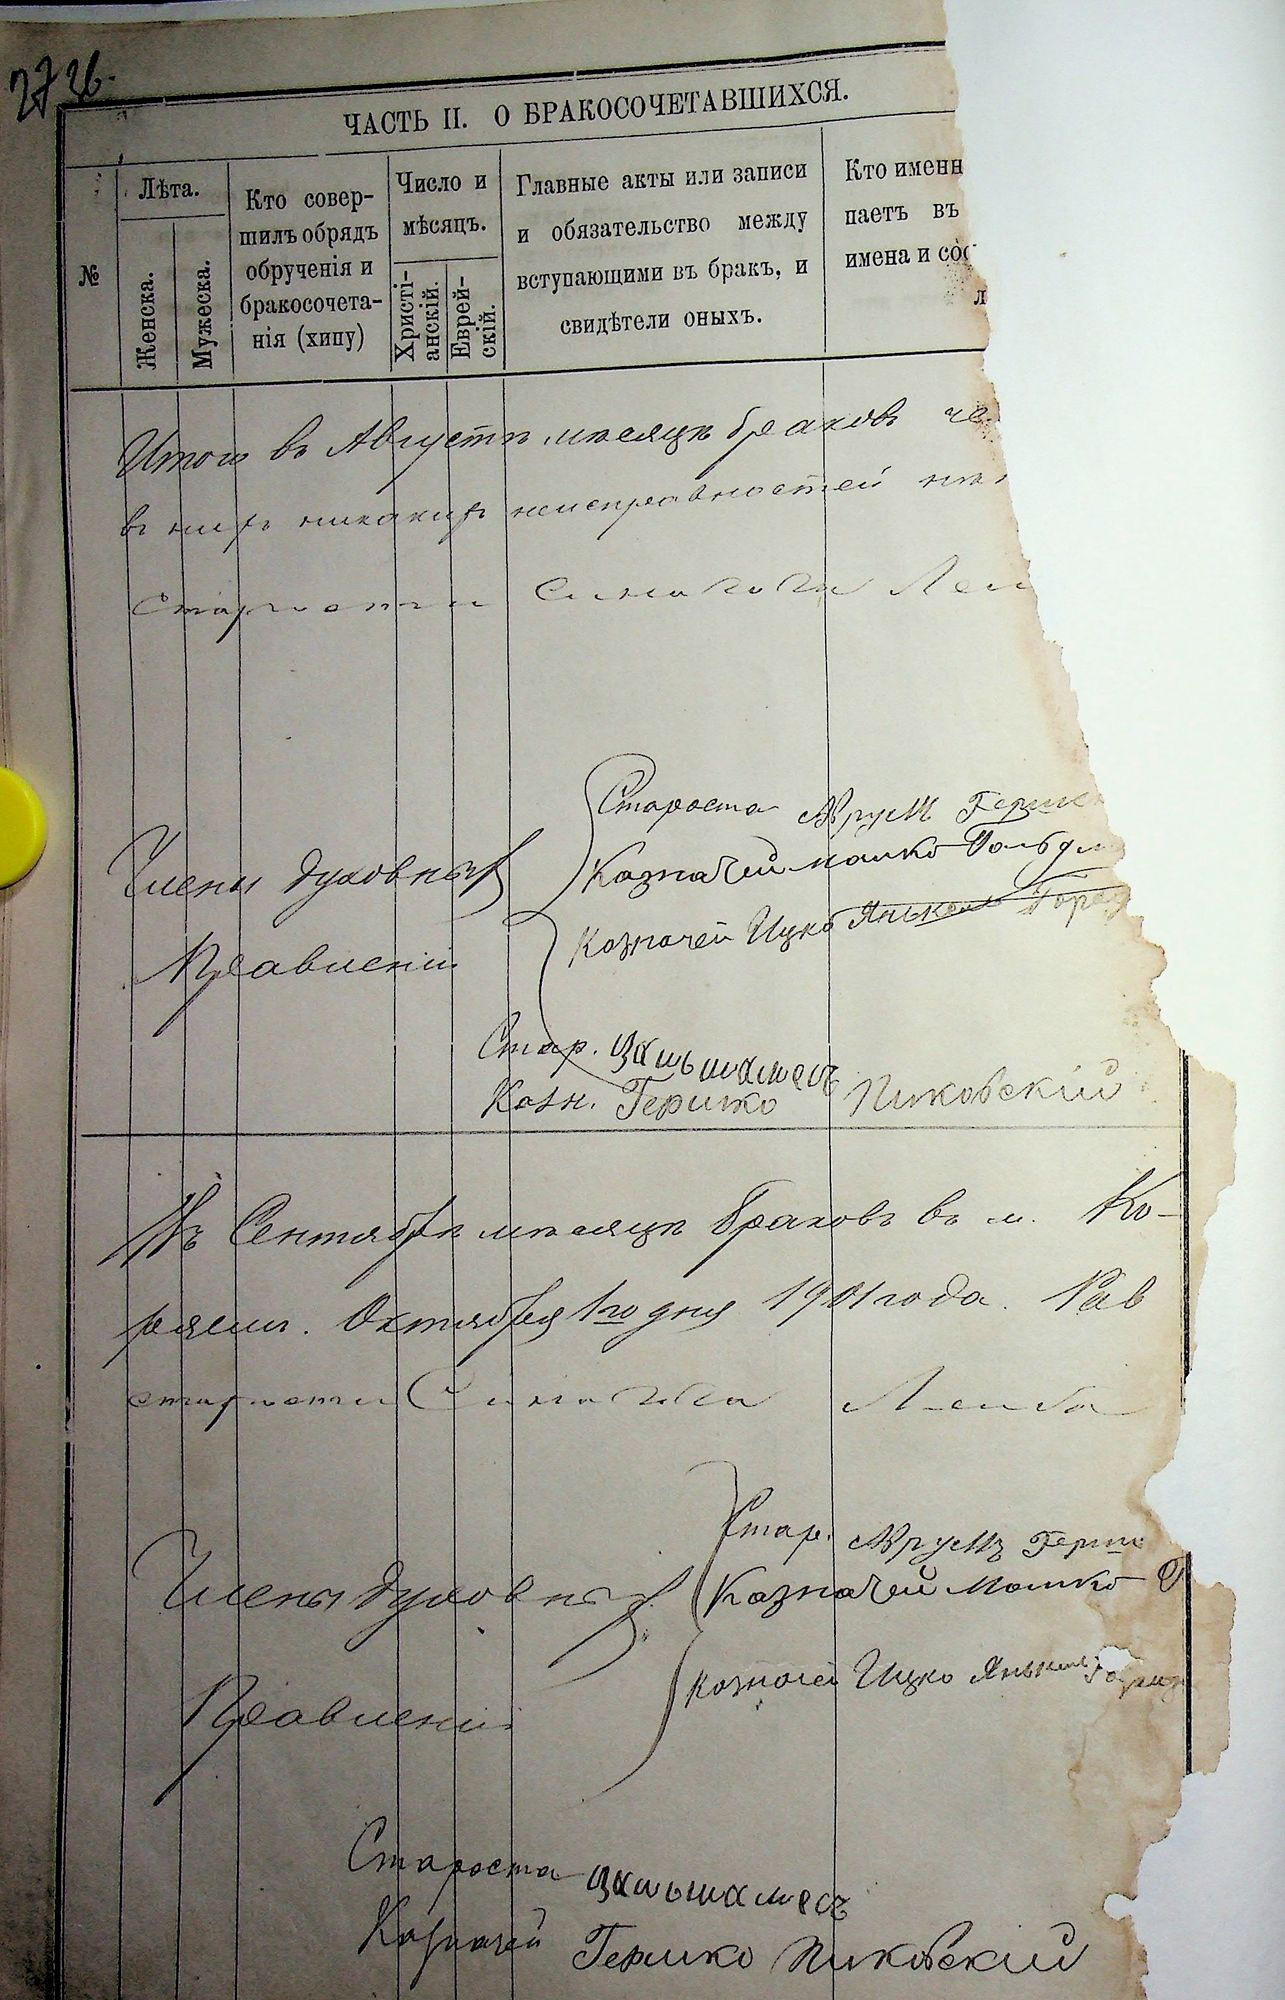 27 26.
ЧАСТЬ II. О БРАКОСОЧЕТАВШИХСЯ.
№
Лѣта.
Женска.
Мужеска.
Кто совер-
шилъ обрядъ
обрученія и
бракосочета-
нія (хипу)
Число и
мѣсяцъ.
Христі-
анскій.
Еврей-
скій.
Главные акты или записи
и обязательство между
вступающими въ бракъ, и
свидѣтели оныхъ.
Кто именн
паетъ въ
имена и сос
л
Итого въ Августѣ мѣсяцѣ браковъ че
въ нихъ никакихъ неисправностей
Старости Синагоги Леи
Члены духовныхъ
Правленій
Староста Аруmъ Герш
Казначей Мошко Гольд
Казначей Ицко Янкель Город
Стар. Цальшамесъ
Казн. Гершко Пиковскій
Въ Сентябрѣ мѣсяцѣ браковъ въ м. Ко-
Октября 1го дня 1901 года. Рав
старости Синагога Лейба
Члены духовныхъ
Правленій
Стар. Аруmъ Герш
Казначей Мошко Г
Казначей Ицко Янкель
Староста Цальшамесъ
Казначей Гершко Пиковскій